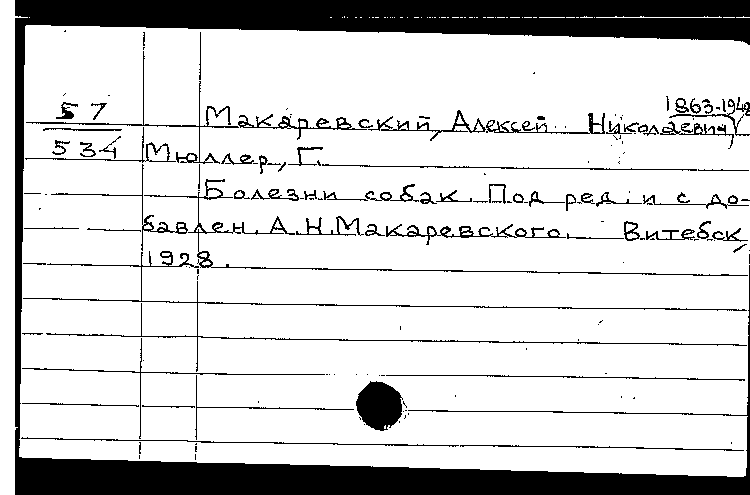 1863-1942
57 Макаревский, Алексей Николаевич
534 Мюллер, Г.
Болезни собак. Под ред. и с до-
бавлен. А.Н.Макаревского. Витебск,
1928.